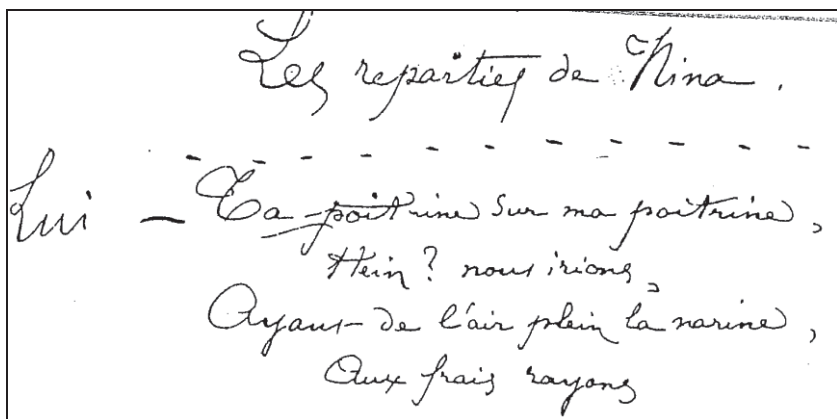 Les reparties de Nina.
- - - - - - - - -
Lui — Ta poitrine sur ma poitrine,
Hein? nous irions,
Ayant de l'air plein la narine,
Aux frais rayons